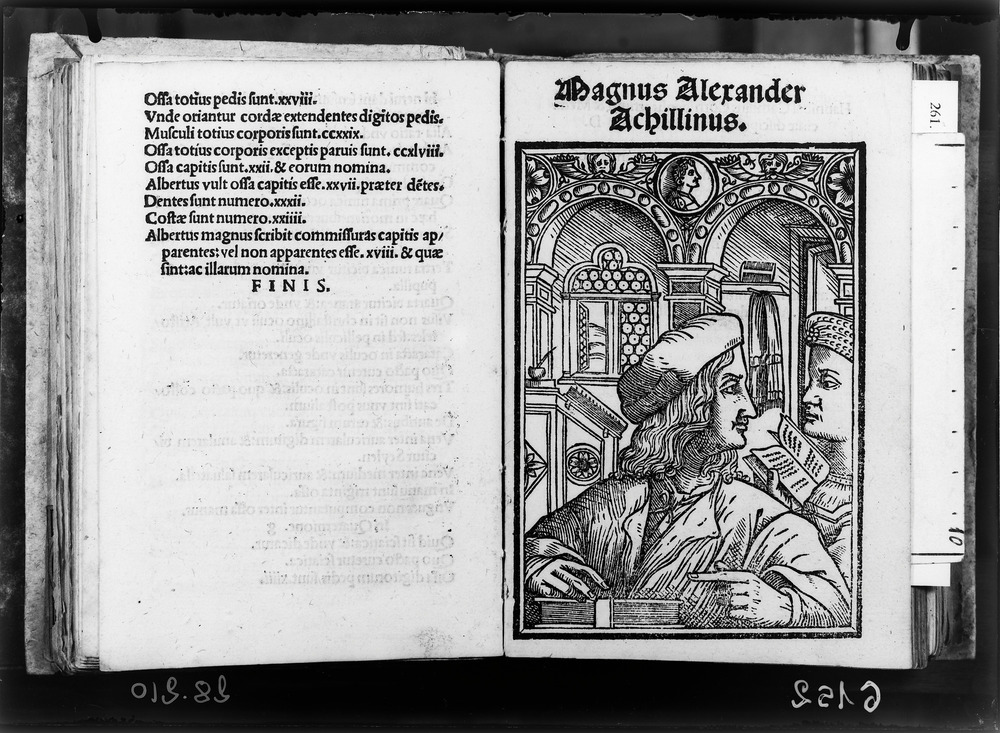 Ossa totius pedis sunt.xxviii.
Vnde oriantur cordæ extendentes digitos pedis.
Musculi totius corporis sunt.ccxxix.
Ossa totius corporis exceptis paruis sunt. ccxlviii.
Ossa capitis sunt.xxii.& eorum nomina.
Albertus vult ossa capitis esse.xxvii.præter dẽtes.
Dentes sunt numero.xxxii.
Costæ sunt numero.xxiiii.
Albertus magnus scribit commissuras capitis ap/
parentes: vel non apparentes esse. xviii. & quæ
sint:ac illarum nomina.
FINIS.
Magnus Alexander
Achillinus.
261.
10
28.210
6152